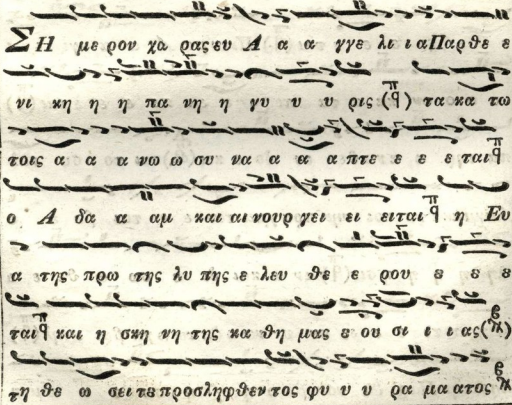 ΣΗ με ρον χα ρας ευ Α α α γγε λι ι α Παρθε ε
νι κη η η πα νη η γυ υ υ υ ρις (π̈) τα κα τω
τοις α α α α νω ω συ να α α α πτε ε ε ε ται
ο Α δα α αμ και αι νουρ γει ει ειται η Ευ
α της πρω της λυ πης ε λευ θε ε ρου ε ε ε
ται και η σκη νη της κα θη μας ε ου σι ι ι ας
τη θε ω σει τε προσληφθεν τος φυ υ υ ρα μα ατος